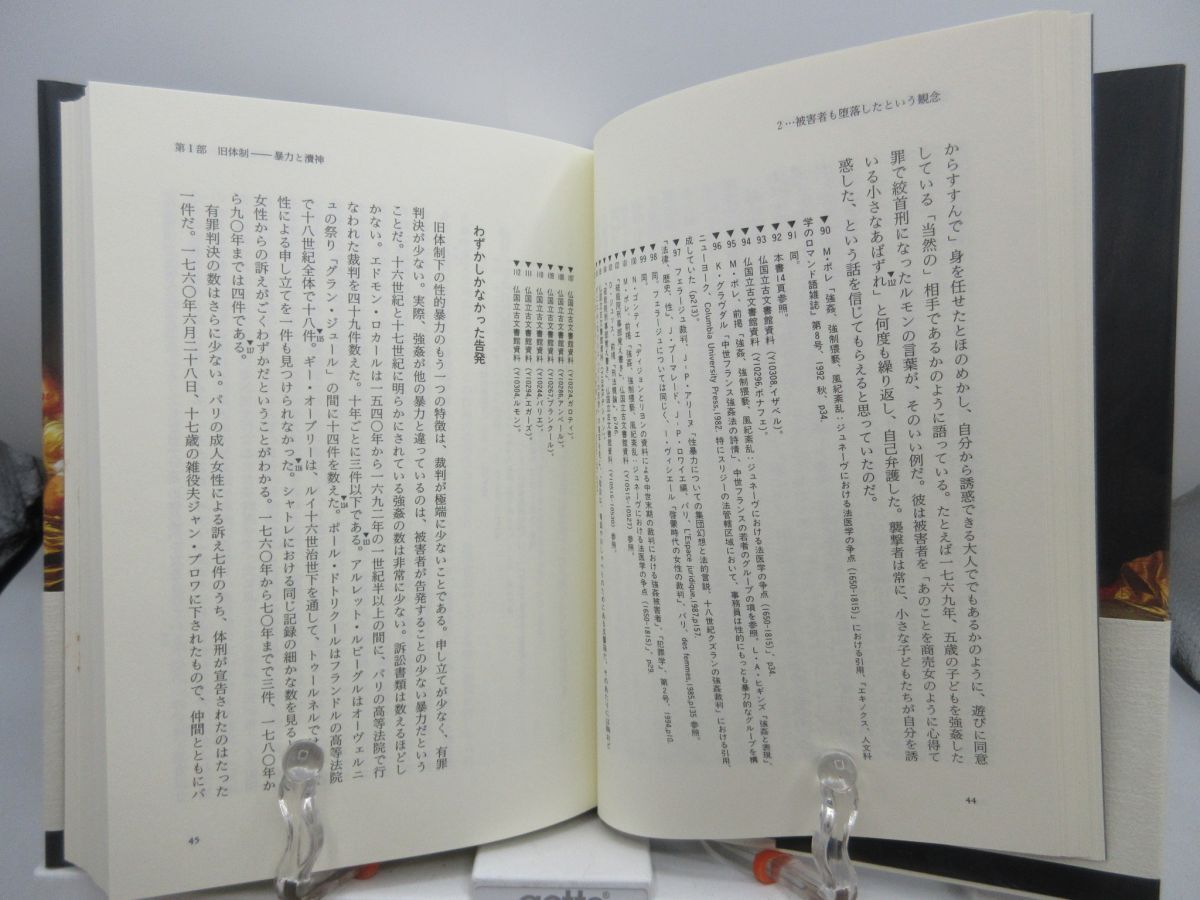 2…被害者も堕落したという観念
からすすんで」身を任せたとほのめかし、自分から誘惑できる大人ででもあるかのように、遊びに同意
している「当然の」相手であるかのように語っている。たとえば一七六九年、五歳の子どもを強姦した
罪で絞首刑になったルモンの言葉が、そのいい例だ。彼は被害者を「あのことを商売女のように心得て
いる小さなあばずれ」▼112と何度も繰り返し、自己弁護した。襲撃者は常に、小さな子どもたちが自分を誘
惑した、という話を信じてもらえると思っていたのだ。
▼90 M・ポレ「強姦、強制猥褻、風紀紊乱:ジュネーヴにおける法医学の争点(1650-1815)」における引用、「エキノクス、人文科
学のロマンド語雑誌」第8号、1992 秋、p34.
▼91 同。
▼92 本書14頁参照。
▼93 仏国立古文書館資料(Y10308,イザベル)。
▼94 仏国立古文書館資料(Y10296,ボナフェ)。
▼95 M・ポレ、前掲「強姦、強制猥褻、風紀紊乱:ジュネーヴにおける法医学の争点(1650-1815)」、p34.
▼96 K・グラヴダル「中世フランス強姦法の詩情」、中世フランスの若者のグループの項を参照。L・A・ヒギンズ「強姦と表現」、
ニューヨーク、Columbia University Press,1982. 特にスリジーの法管轄区域において、事務員は性的にもっとも暴力的なグループを構
成していた(p213)。
▼97 フェラージュ裁判、J・P・アリーヌ「性暴力についての集団幻想と法的言説、十八世紀クズランの強姦裁判」における引用、
「法律、歴史、性」、J・プーマレード、J-P・ロワイエ編、パリ、L'Espace juridique,1987,p157.
▼98 同。フェラージュについては同じく、I・ヴィシエール「啓蒙時代の女性の裁判」、パリ、des femmes,1985,p135 参照。
▼99 同。
44
第Ⅰ部 旧体制――暴力と瀆神
▼108 仏国立古文書館資料(Y10267,ブランクール)。
▼110 仏国立古文書館資料(Y10244,バリエ)。
▼111 仏国立古文書館資料(Y10294,エガーズ)。
▼112 仏国立古文書館資料(Y10304,ルモン)。
わずかしかなかった告発
旧体制下の性的暴力のもう一つの特徴は、裁判が極端に少ないことである。申し立てが少なく、有罪
判決が少ない。実際、強姦が他の暴力と違っているのは、被害者が告発することの少ない暴力だという
ことだ。十六世紀と十七世紀に明らかにされている強姦の数は非常に少ない。訴訟書類は数えるほどし
かない。エドモン・ロカールは一五四〇年から一六九二年の一世紀半以上の間に、パリの高等法院で行
なわれた裁判を四十九件数えた。十年ごとに三件以下である。▼113アルレット・ルビーグルはオーヴェルニ
ュの祭り「グラン・ジュール」の間に十四件を数えた。▼114ポール・ドトリクールはフランドルの高等法院
で十八世紀全体で十八件。▼115ギー・オーブリーは、ルイ十六世治世下を通して、トゥールネルで
性による申し立てを一件も見つけられなかった。▼116シャトレにおける同じ記録の細かな数を見る
女性からの訴えがごくわずかだということがわかる。一七六〇年から七〇年までで三件、一七八〇年か
ら九〇年までは四件である。▼117
有罪判決の数はさらに少ない。パリの成人女性による訴え七件のうち、体刑が宣告されたのはたった
一件だ。一七六〇年六月二十八日、十七歳の雑役夫ジャン・プロワに下されたもので、仲間とともにバ
45